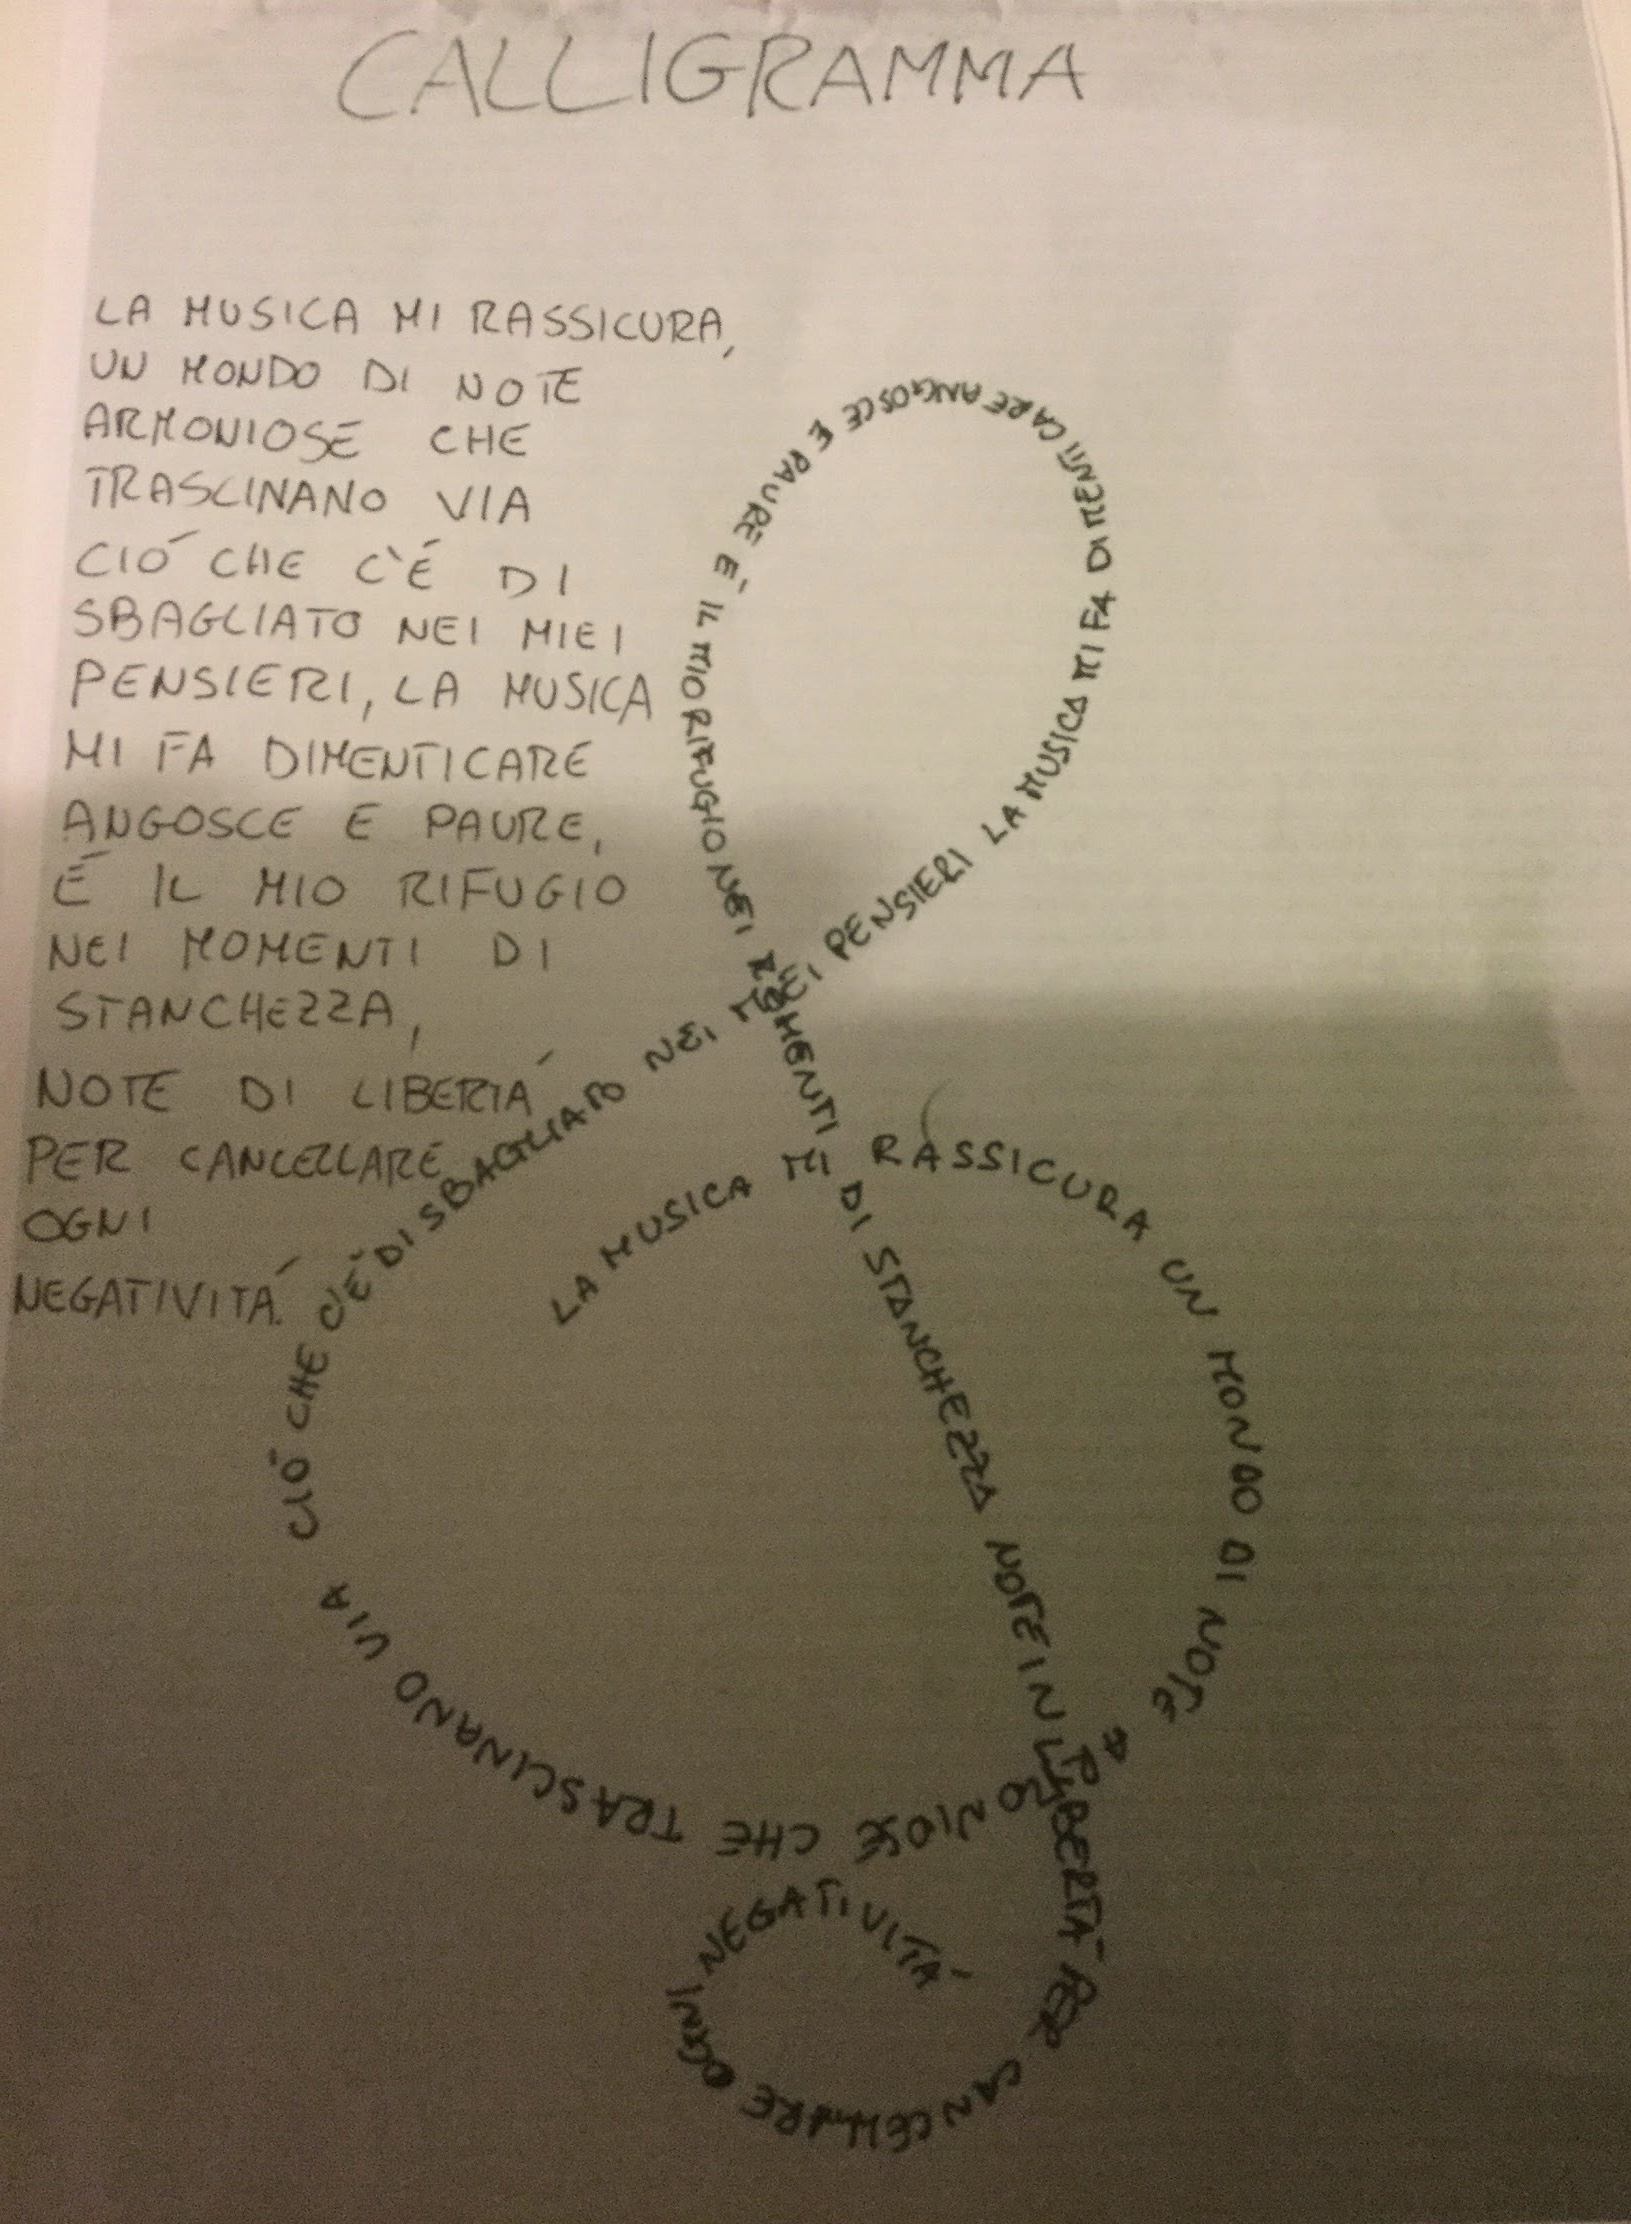 CALLIGRAMMA
LA MUSICA MI RASSICURA,
UN MONDO DI NOTE
ARMONIOSE CHE
TRASCINANO VIA
CIÓ CHE C'É DI
SBAGLIATO NEI MIEI
PENSIERI, LA MUSICA
MI FA DIMENTICARE
ANGOSCE E PAURE,
É IL MIO RIFUGIO
NEI MOMENTI DI
STANCHEZZA,
NOTE DI LIBERTÁ
PER CANCELLARE
OGNI
NEGATIVITÁ.
LA MUSICA MI RASSICURA UN MONDO DI NOTE ARMONIOSE CHE TRASCINANO VIA CIÓ CHE C'É DI SBAGLIATO NEI MIEI PENSIERI LA MUSICA MI FA DIMENTICARE ANGOSCE E PAURE É IL MIO RIFUGIO NEI MOMENTI DI STANCHEZZA NOTE IN LIBERTÁ PER CANCELLARE OGNI NEGATIVITÁ